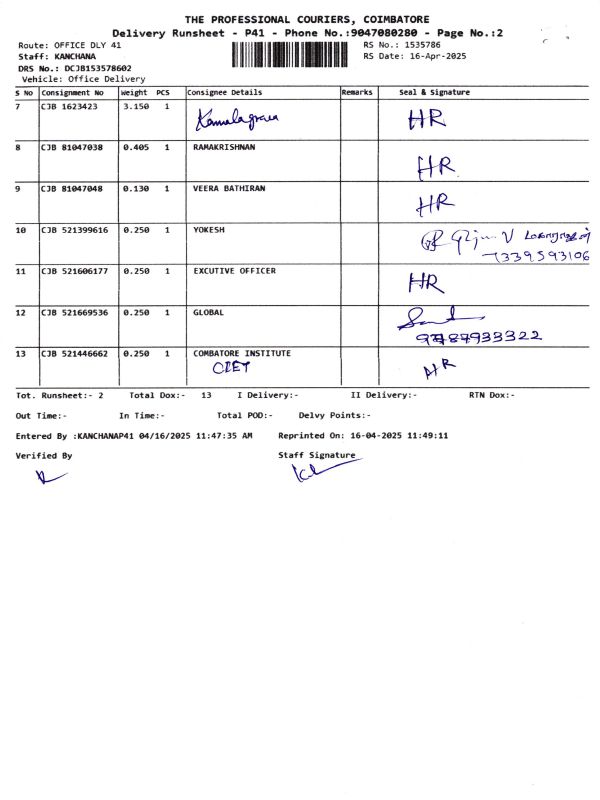 THE PROFESSIONAL COURIERS, COIMBATORE
Delivery Runsheet - P41 - Phone No.:9047080280 - Page No.:2
Route: OFFICE DLY 41 RS No.: 1535786
Staff: KANCHANA RS Date: 16-Apr-2025
DRS No.: DCJB153578602
Vehicle: Office Delivery
S No Consignment No Weight PCS Consignee Details Remarks Seal & Signature
7 CJB 1623423 3.150 1 HR
8 CJB 81047038 0.405 1 RAMAKRISHNAN HR
9 CJB 81047048 0.130 1 VEERA BATHIRAN HR
10 CJB 521399616 0.250 1 YOKESH
7339593106
11 CJB 521606177 0.250 1 EXCUTIVE OFFICER HR
12 CJB 521669536 0.250 1 GLOBAL
13 CJB 521446662 0.250 1 COMBATORE INSTITUTE HR
CIET
Tot. Runsheet:- 2 Total Dox:- 13 I Delivery:- II Delivery:- RTN Dox:-
Out Time:- In Time:- Total POD:- Delvy Points:-
Entered By :KANCHANAP41 04/16/2025 11:47:35 AM Reprinted On: 16-04-2025 11:49:11
Verified By Staff Signature